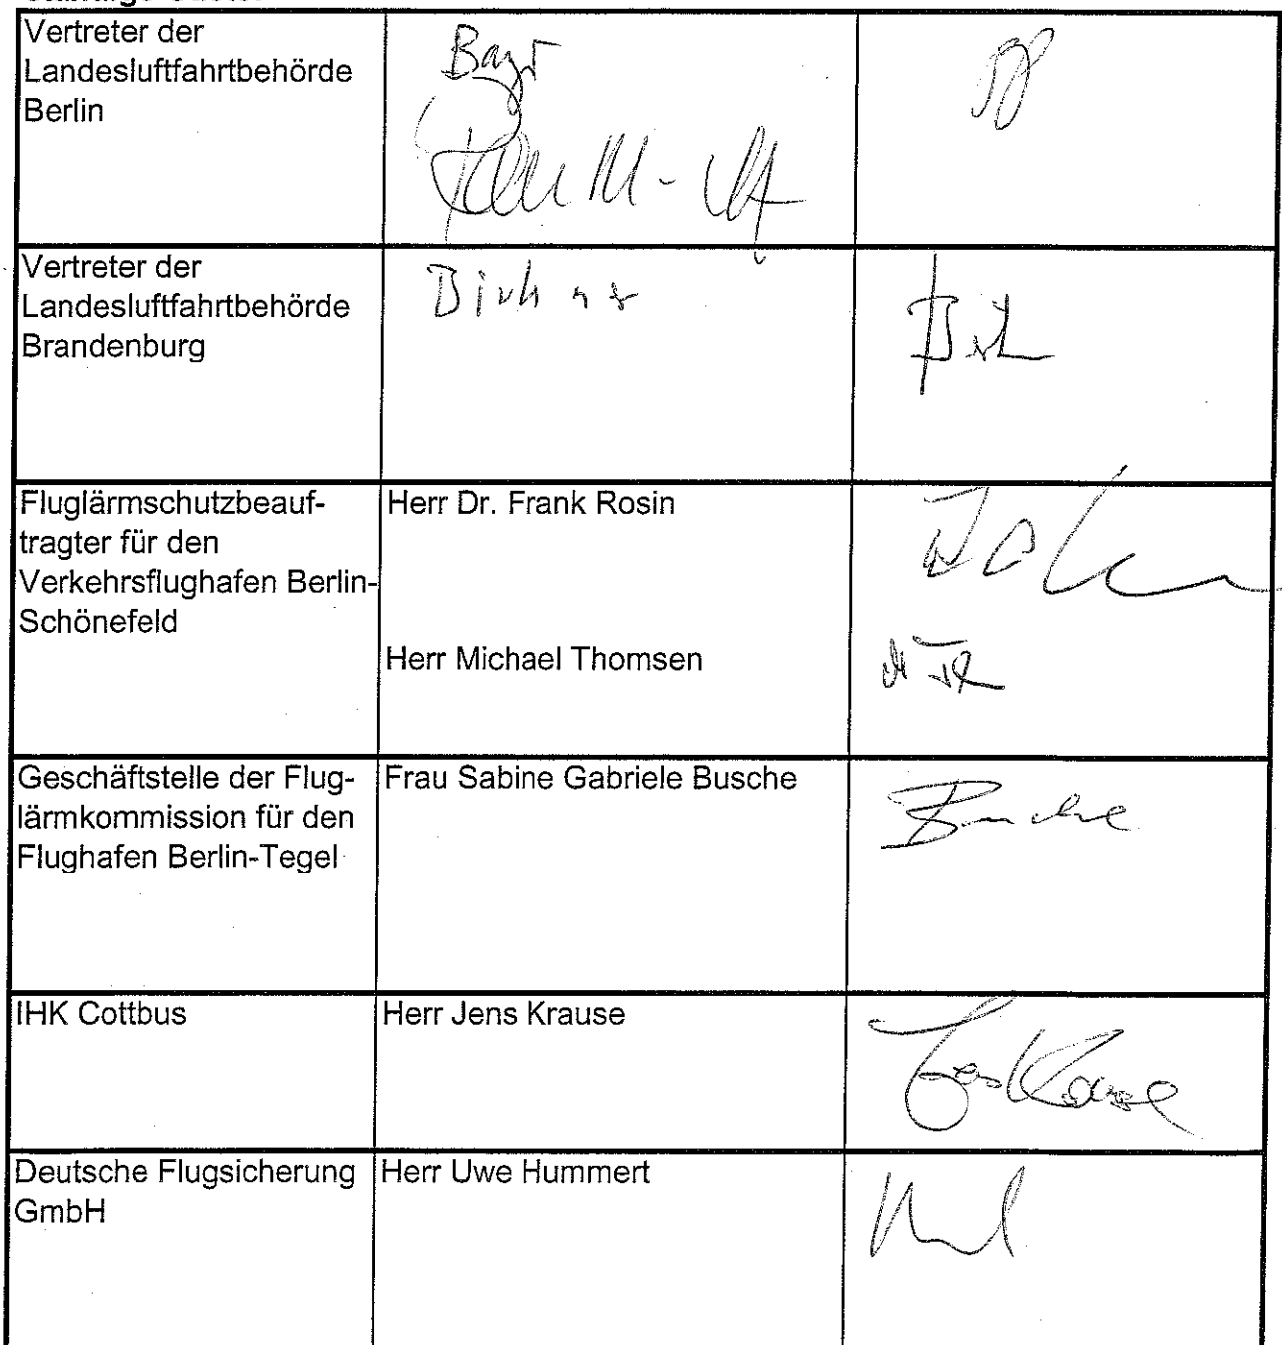 Vertreter der
Landesluftfahrtbehörde
Berlin
Vertreter der
Landesluftfahrtbehörde
Brandenburg
Fluglärmschutzbeauf-
tragter für den
Verkehrsflughafen Berlin-
Schönefeld
Herr Dr. Frank Rosin
Herr Michael Thomsen
Geschäftstelle der Flug-
lärmkommission für den
Flughafen Berlin-Tegel
Frau Sabine Gabriele Busche
Busche
IHK Cottbus
Herr Jens Krause
Jens Krause
Deutsche Flugsicherung
GmbH
Herr Uwe Hummert